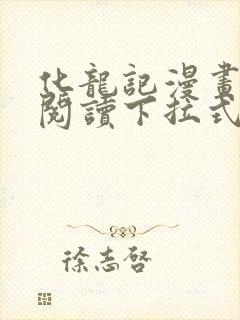 化龍記漫畫
閱讀下拉式
徐志啓